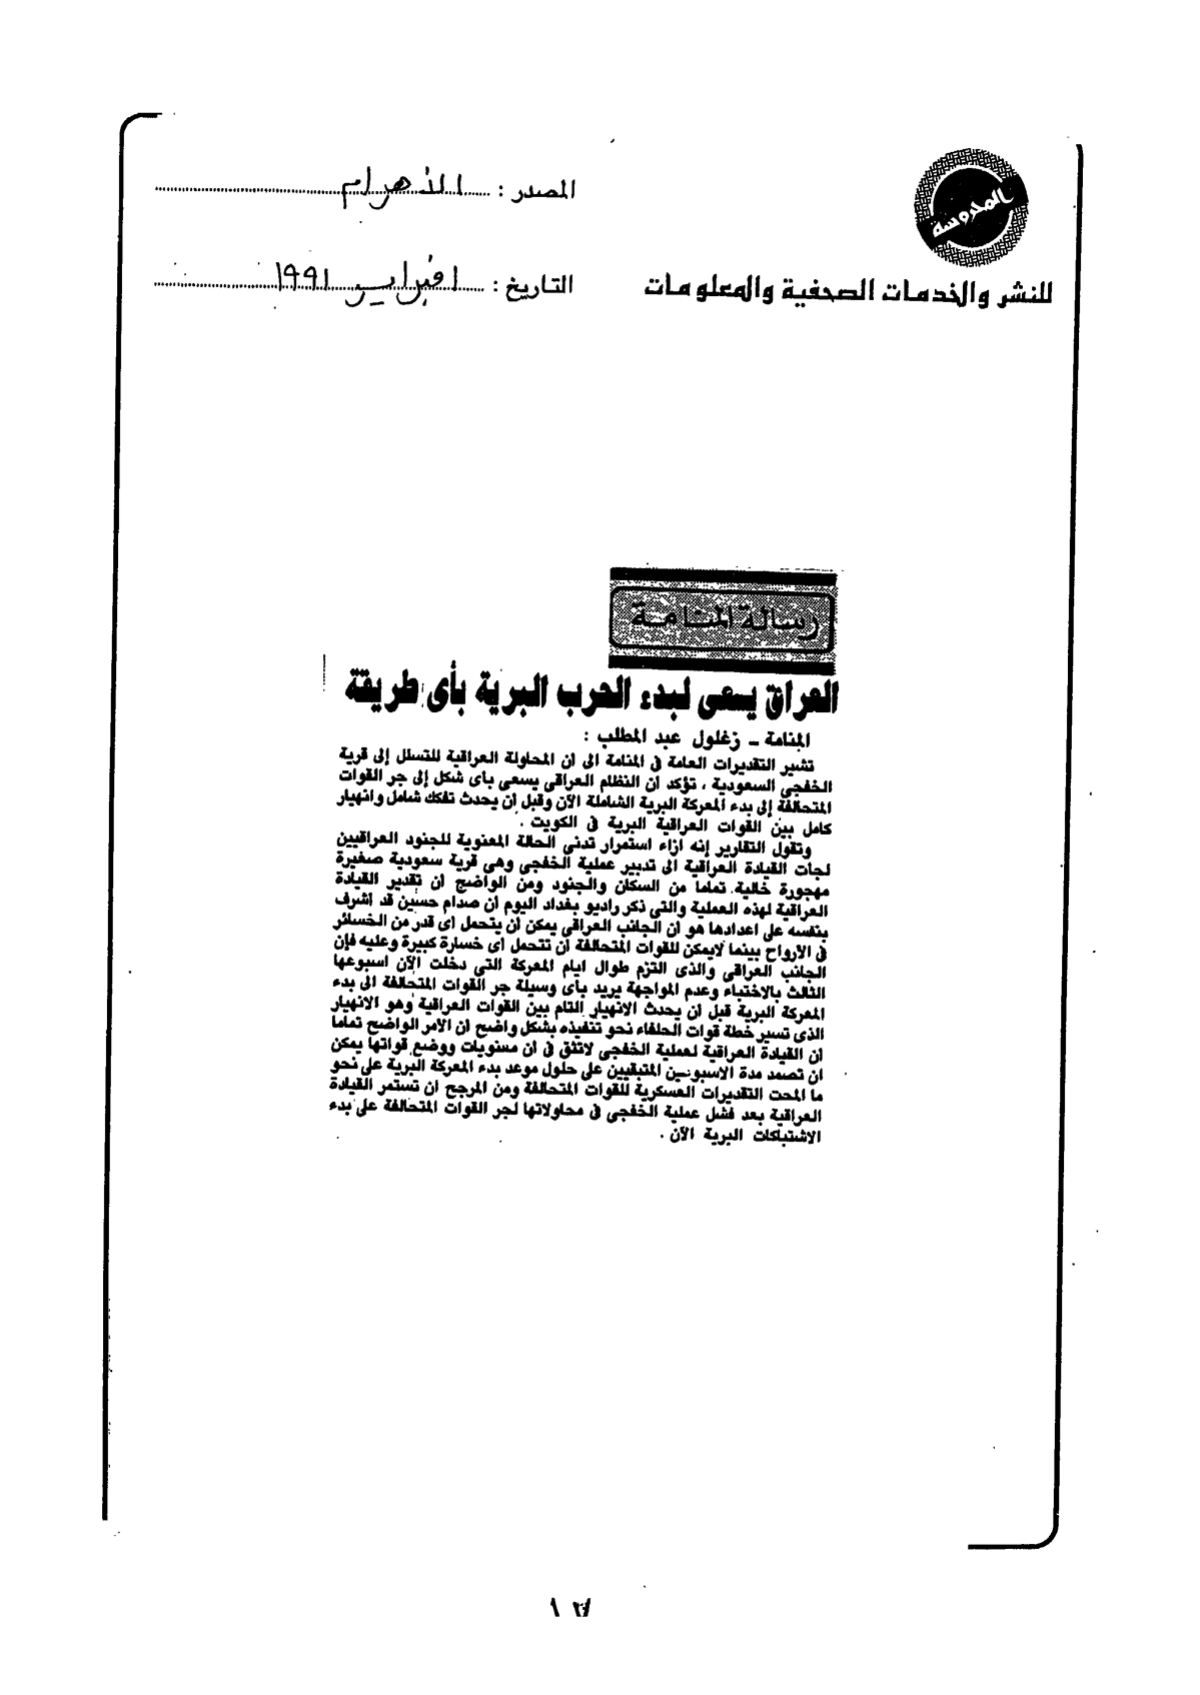 المحروسة
للنشر والخدمات الصحفية والمعلومات
المصدر : الأهرام
التاريخ : ١ فبراير ١٩٩١
رسالة المنامة
العراق يسعى لبدء الحرب البرية بأى طريقة
المنامة ـ زغلول عبد المطلب :
تشير التقديرات العامة فى المنامة الى ان المحاولة العراقية للتسلل إلى قرية
الخفجى السعودية ، تؤكد أن النظام العراقى يسعى باى شكل إلى جر القوات
المتحالفة إلى بدء المعركة البرية الشاملة الآن وقبل ان يحدث تفكك شامل وانهيار
كامل بين القوات العراقية البرية فى الكويت .
وتقول التقارير إنه ازاء استمرار تدنى الحالة المعنوية للجنود العراقيين
لجات القيادة العراقية الى تدبير عملية الخفجى وهى قرية سعودية صغيرة
مهجورة خالية تماما من السكان والجنود ومن الواضح أن تقدير القيادة
العراقية لهذه العملية والتى ذكر راديو بغداد اليوم أن صدام حسين قد اشرف
بنفسه على اعدادها هو ان الجانب العراقى يمكن أن يتحمل اى قدر من الخسائر
فى الأرواح بينما لايمكن للقوات المتحالفة أن تتحمل اى خسارة كبيرة وعليه فإن
الجانب العراقى والذى التزم طوال ايام المعركة التى دخلت الآن اسبوعها
الثالث بالاختباء وعدم المواجهة يريد بأى وسيلة جر القوات المتحالفة الى بدء
المعركة البرية قبل ان يحدث الانهيار التام بين القوات العراقية وهو الانهيار
الذى تسير خطة قوات الحلفاء نحو تنفيذه بشكل واضح ان الأمر الواضح تماما
ان القيادة العراقية لعملية الخفجى لاتثق فى ان مستويات ووضع قواتها يمكن
ان تصمد مدة الاسبوعين المتبقيين على حلول موعد بدء المعركة البرية على نحو
ما المحت التقديرات العسكرية للقوات المتحالفة ومن المرجح ان تستمر القيادة
العراقية بعد فشل عملية الخفجى فى محاولاتها لجر القوات المتحالفة على بدء
الاشتباكات البرية الآن .